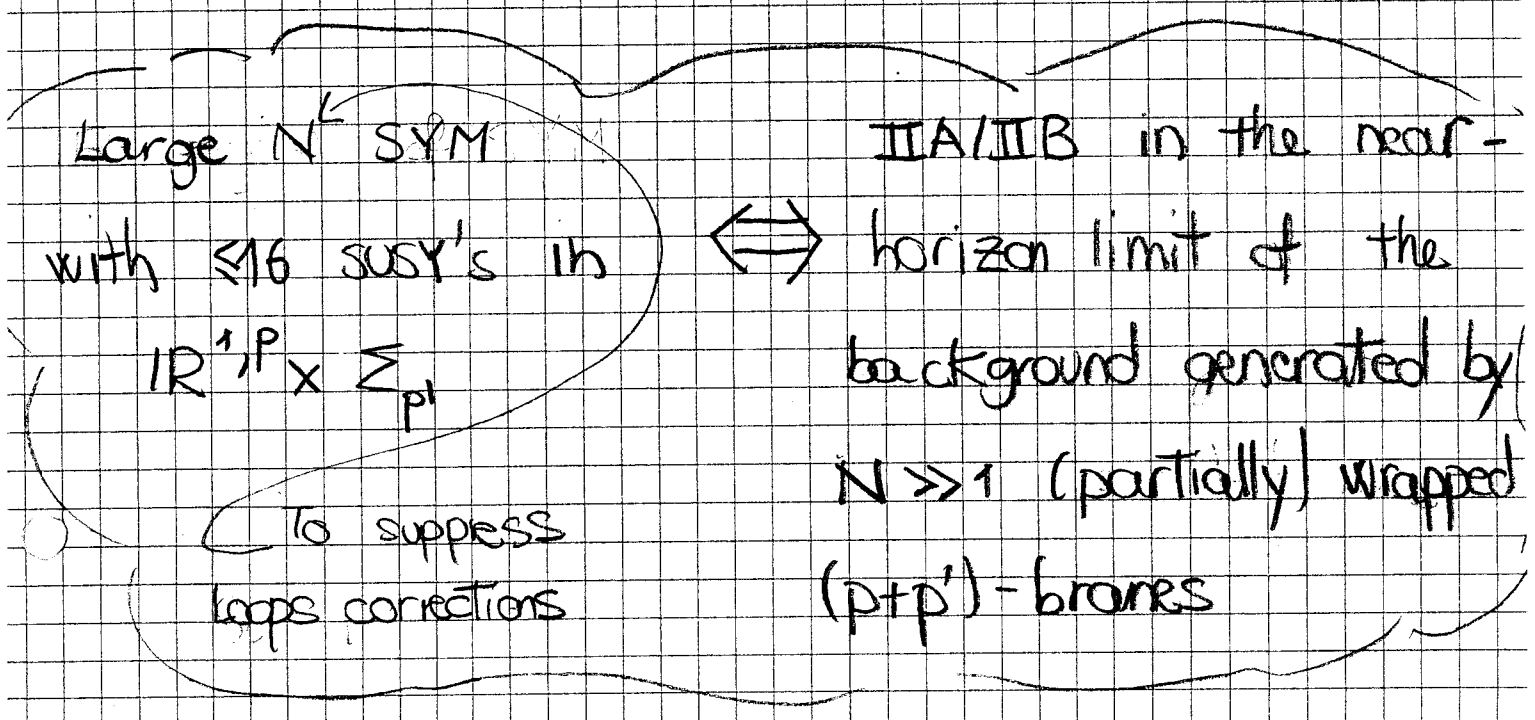 Large N SYM
with ≤16 SUSY's in
ℝ^{1,p} × Σ_{p'}
To suppress
loops corrections
⟺
IIA/IIB in the near-
horizon limit of the
background generated by
N >> 1 (partially) wrapped
(p+p') - branes